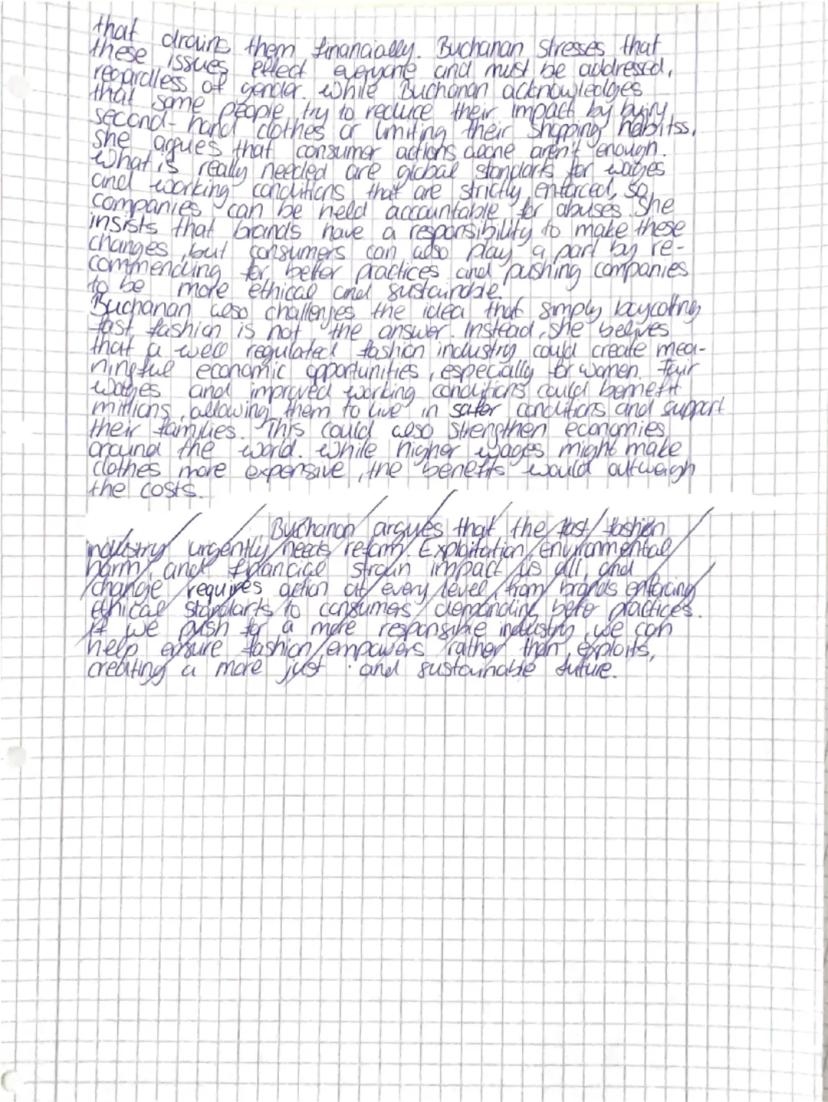 that drains them financially. Buchanan stresses that
these issues effect everyone and must be addressed,
regardless of gender. While Buchanan acknowledges
that some people try to reduce their impact by
second-hand clothes or limiting their shopping habitss,
she argues that consumer actions alone aren't enough.
What is really needed are global standarts for wages
and working conditions that are strictly enforced, so
companies can be held accountable for abuses. She
insists that brands have a responsibility to make these
changes, but consumers can also play a part by re-
commending for better practices and pushing companies
to be more ethical and sustainable.
Buchanan also challenges the idea that simply boycotting
fast fashion is not the answer. Instead, she belives
that a well regulated fashion industry could create mea-
ningful economic opportunities, especially for women. Fair
wages and improved working conditions could benefit
millions, allowing them to live in safer conditions and support
their families. This could also strengthen economies
around the world. While higher wages might make
clothes more expensive, the benefits would outweigh
the costs.
Buchanan argues that the fast fashion
industry urgently needs reform. Exploitation, environmental
harm and financial strain impact us all, and
change requires action at every level, from brands enforcing
ethical standarts to consumers demanding better practices.
If we push for a more responsible industry, we can
help ensure fashion empowers rather than exploits,
creating a more just and sustainable future.